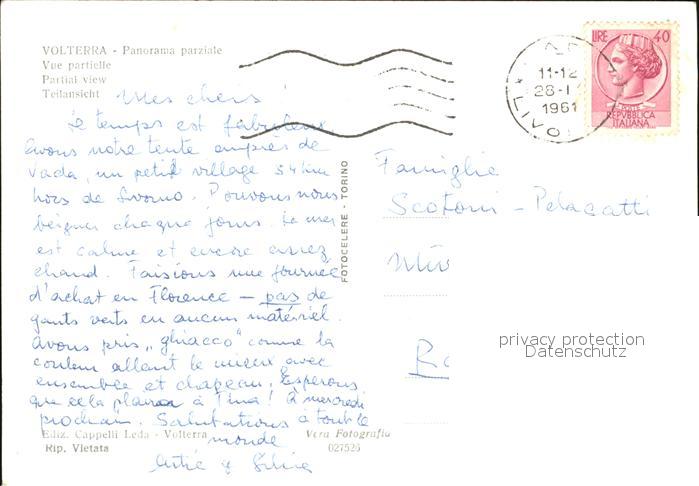 VOLTERRA - Panorama parziale
Vue partielle
Partial view
Teilansicht
Mes chers!
Le temps est fabuleux
Avons notre tente auprès de
Vada, un petit village 34 km
hors de Livorno. Pouvons nous
beigner chaque jours. La mer
est calme et encore assez
chaud. Faisions une journée
d'achat en Florence - pas de
gants verts en aucun matériel.
Avons pris „ghiacco" comme la
couleur allant le mieux avec
ensemble et chapeau. Esperons
que cela plaira à Tina! À mercredi
prochain. Salutations à tout le
monde
& Silvia
Ediz. Cappelli Leda - Volterra
Vera Fotografia
Rip. Vietata
027526
FOTOCELERE - TORINO
LIRE 40
REPVBBLICA
ITALIANA
11-12
1961
LIVO
Famiglie
Scotoni - Pelacatti
privacy protection
Datenschutz